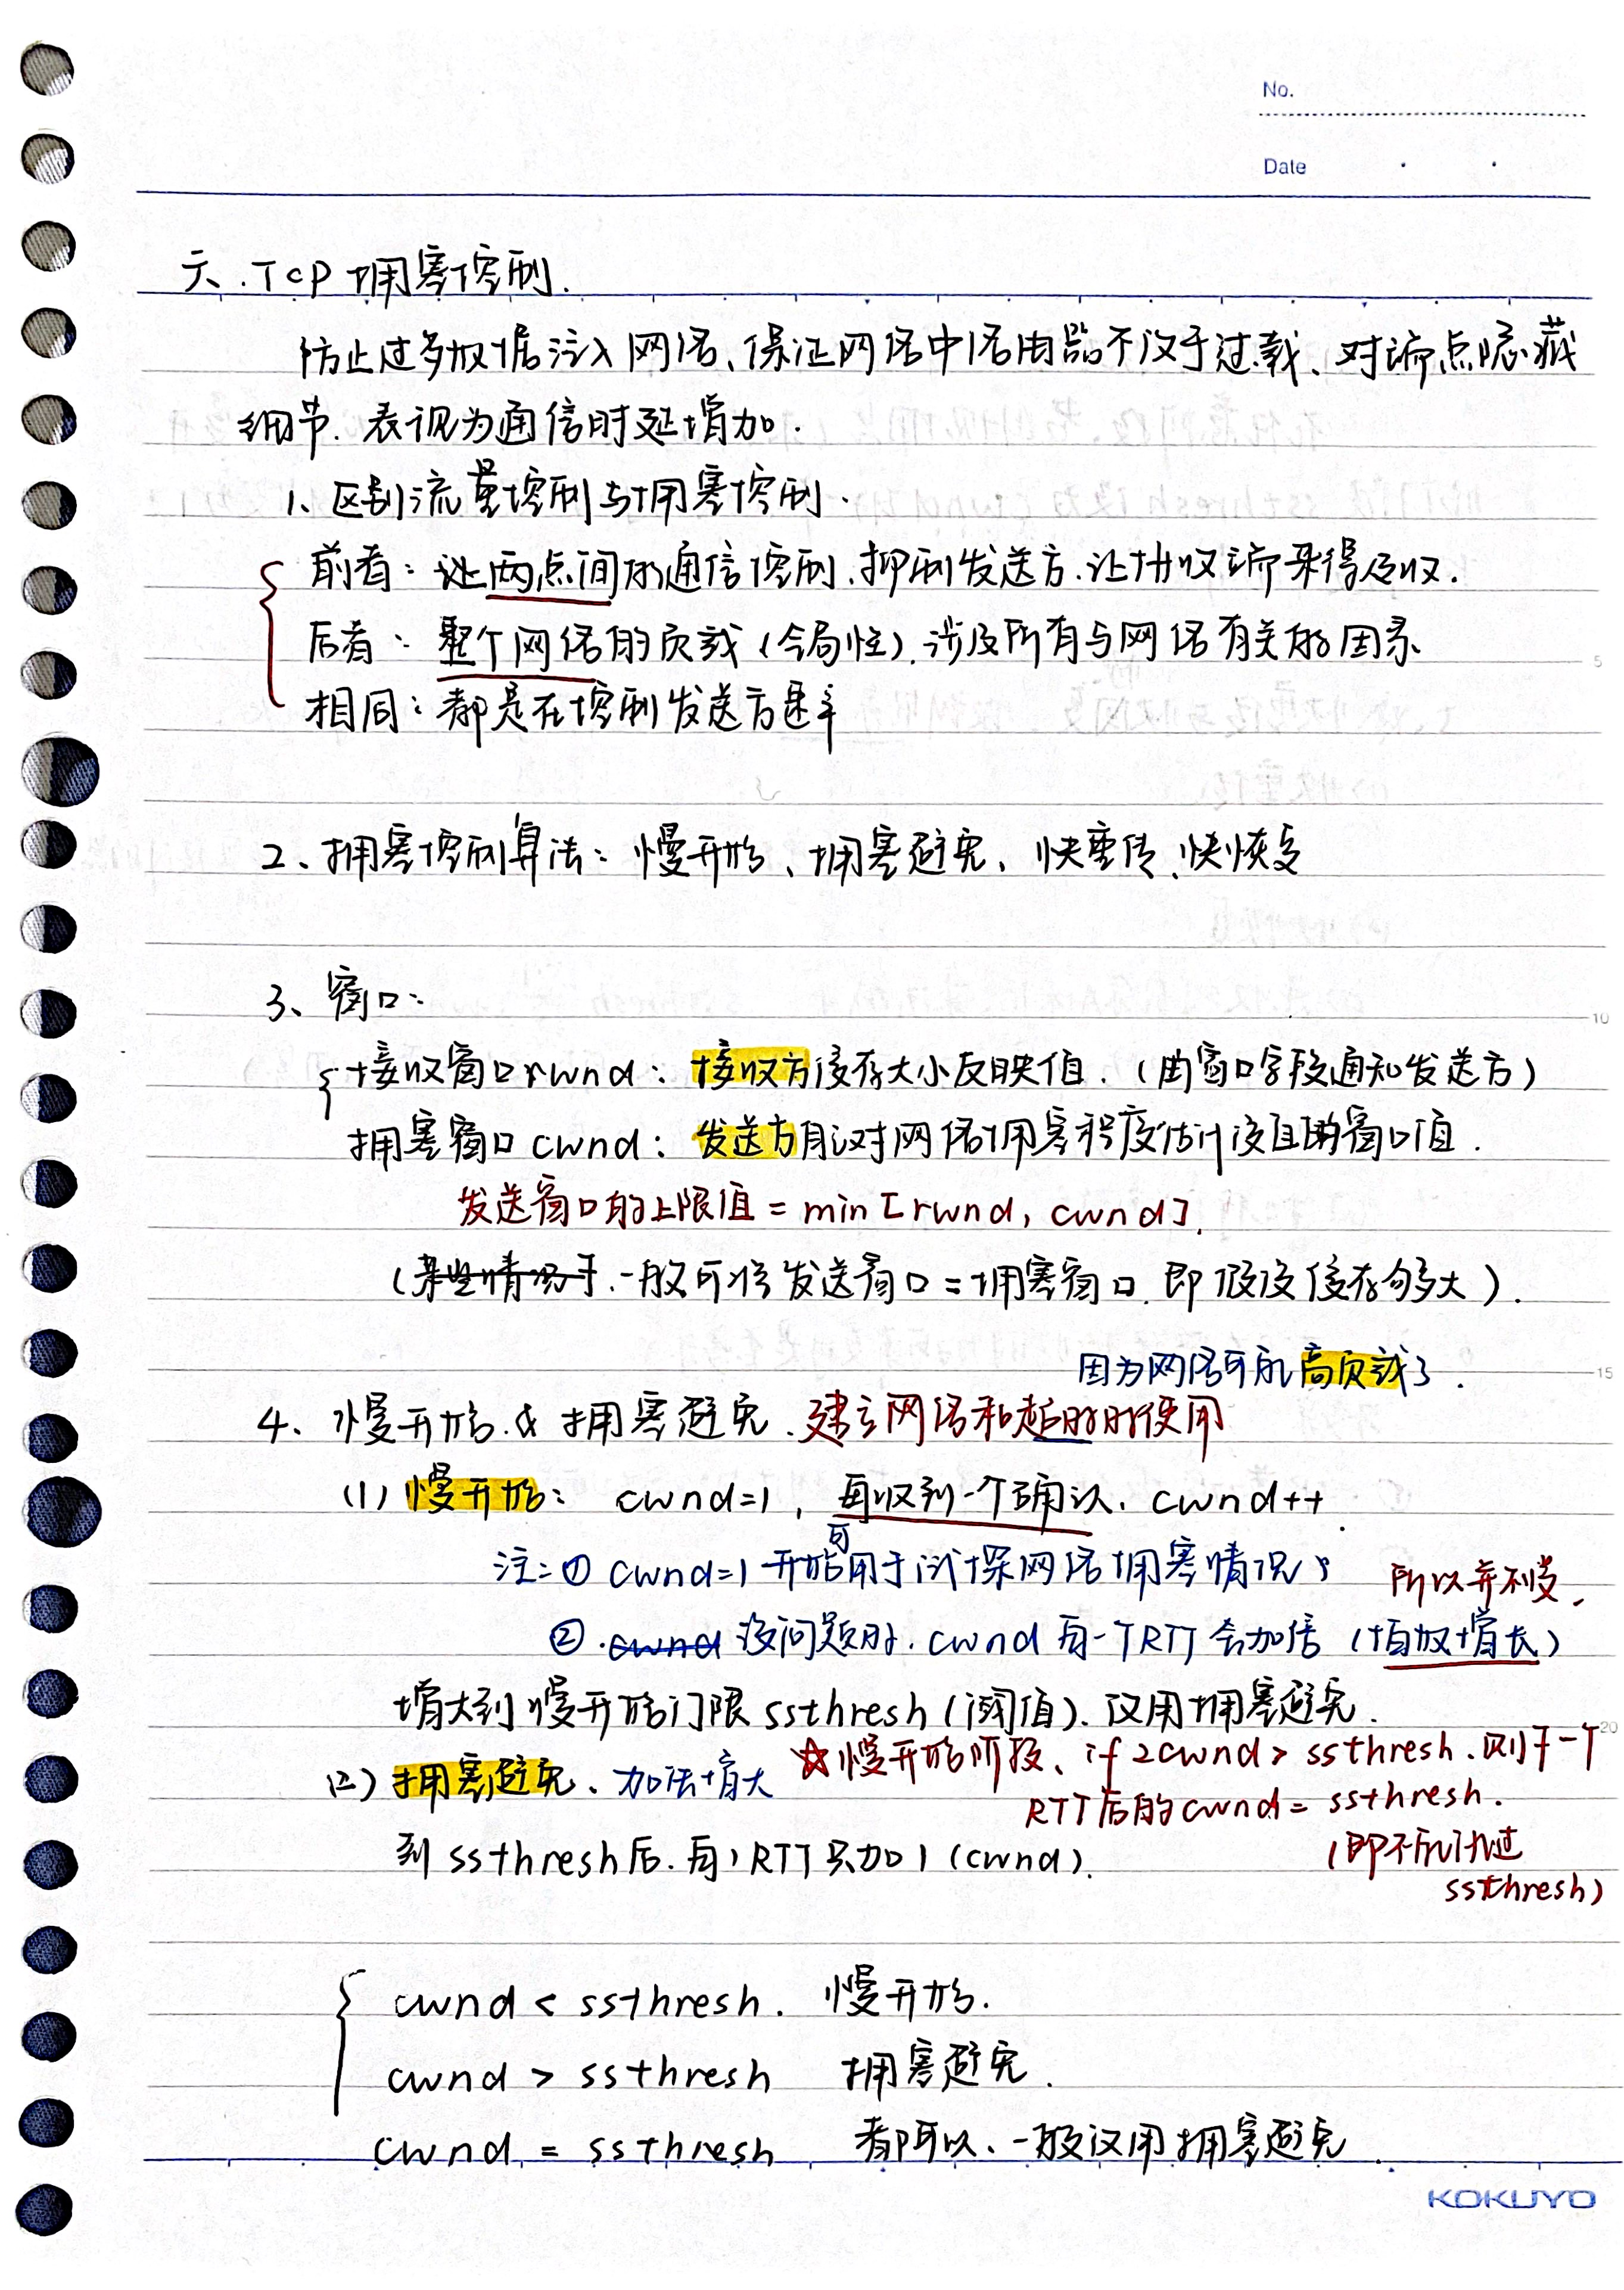 No.
Date
六、TCP拥塞控制.
防止过多数据注入网络、保证网络中路由器不致于过载、对端点隐藏
细节. 表现为通信时延增加.
1、区别流量控制与拥塞控制.
前者: 两点间的通信控制.抑制发送方.让接收端来得及收.
后者: 整个网络的负载(全局性).涉及所有与网络有关的因素
相同: 都是在控制发送方速率
2、拥塞控制算法: 慢开始、拥塞避免、快重传、快恢复
3、窗口:
接收窗口rwnd: 接收方缓存大小反映值. (由窗口字段通知发送方)
拥塞窗口cwnd: 发送方自认对网络拥塞程度估计设置的窗口值.
发送窗口的上限值=min[rwnd, cwnd].
(某些情况下.一般可将发送窗口=拥塞窗口.即假设缓存够大).
因为网络可能高负载了.
4、慢开始.& 拥塞避免.建立网络和超时时使用
(1) 慢开始: cwnd=1, 每收到一个确认. cwnd++.
注:① cwnd=1开始可用于试探网络拥塞情况; 所以并不慢.
② cwnd 没问题时.cwnd 每一个RTT会加倍 (指数增长)
增大到慢开始门限ssthresh(阈值).改用拥塞避免.
(2) 拥塞避免、加法增大 ☆慢开始阶段、if 2cwnd > ssthresh.则下一个
RTT后的cwnd = ssthresh.
到ssthresh后.每1RTT只加1(cwnd).
(即不能越过
ssthresh)
cwnd < ssthresh. 慢开始.
cwnd > ssthresh 拥塞避免.
cwnd = ssthresh 都可以、一般仅用拥塞避免.
5
10
15
20
KOKUYO